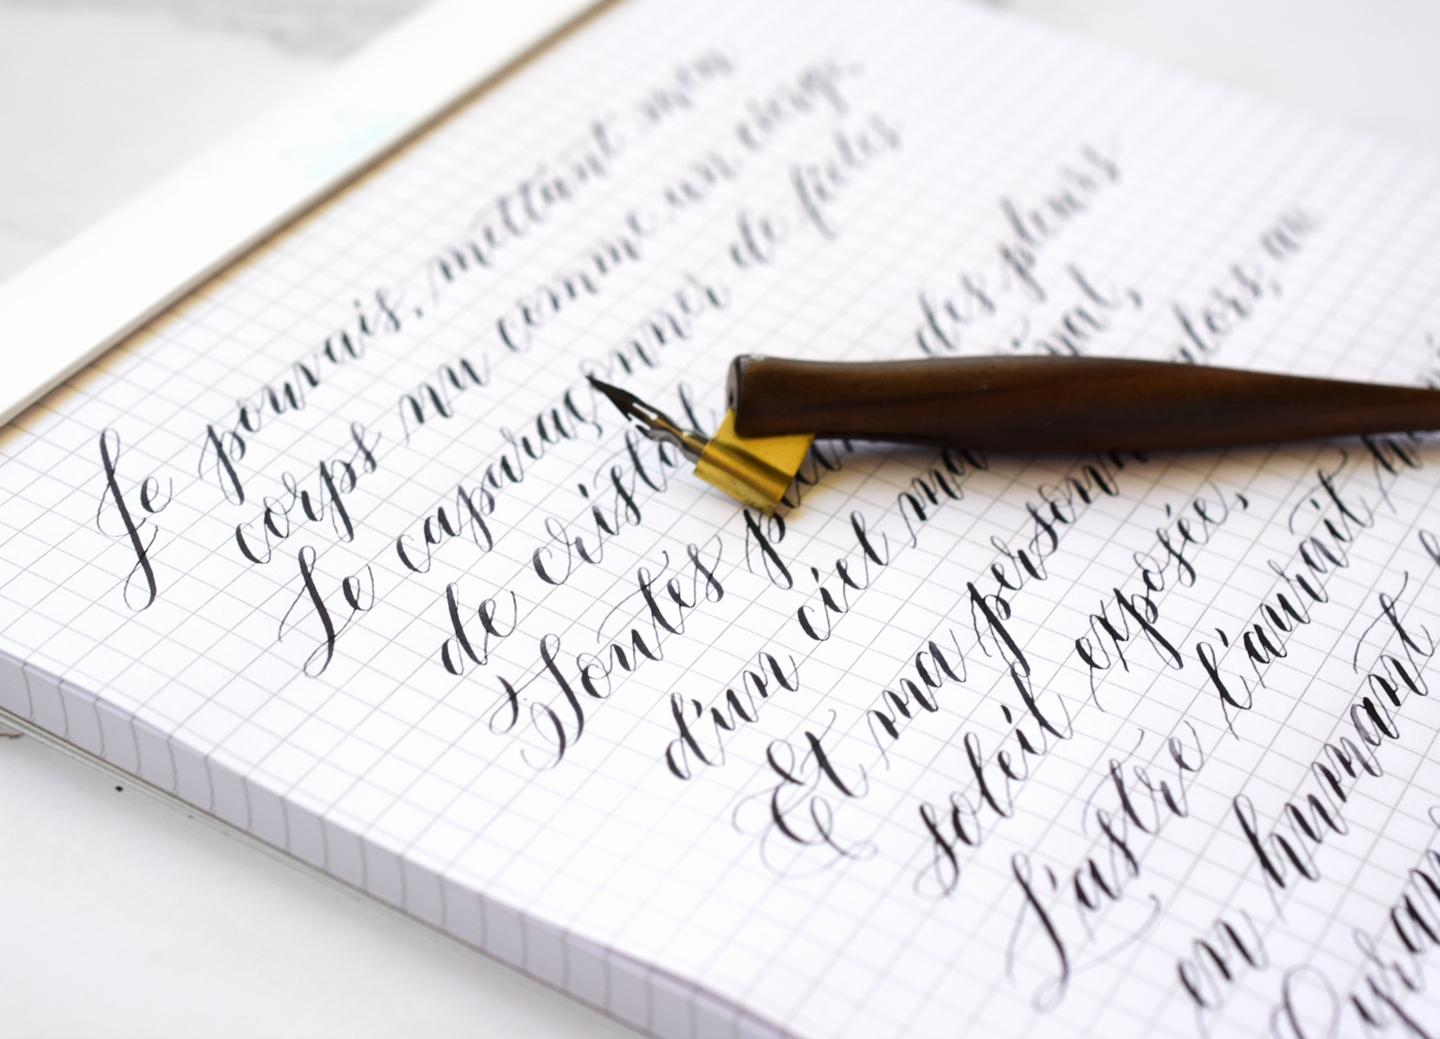 Je pouvais, mettant mon
corps nu comme un cierge,
Le caparaçonner de fioles
de cristal
Toutes des pleurs
d'un ciel
Et ma alors, au
soleil exposée,
L'astre l'aurait
en humant